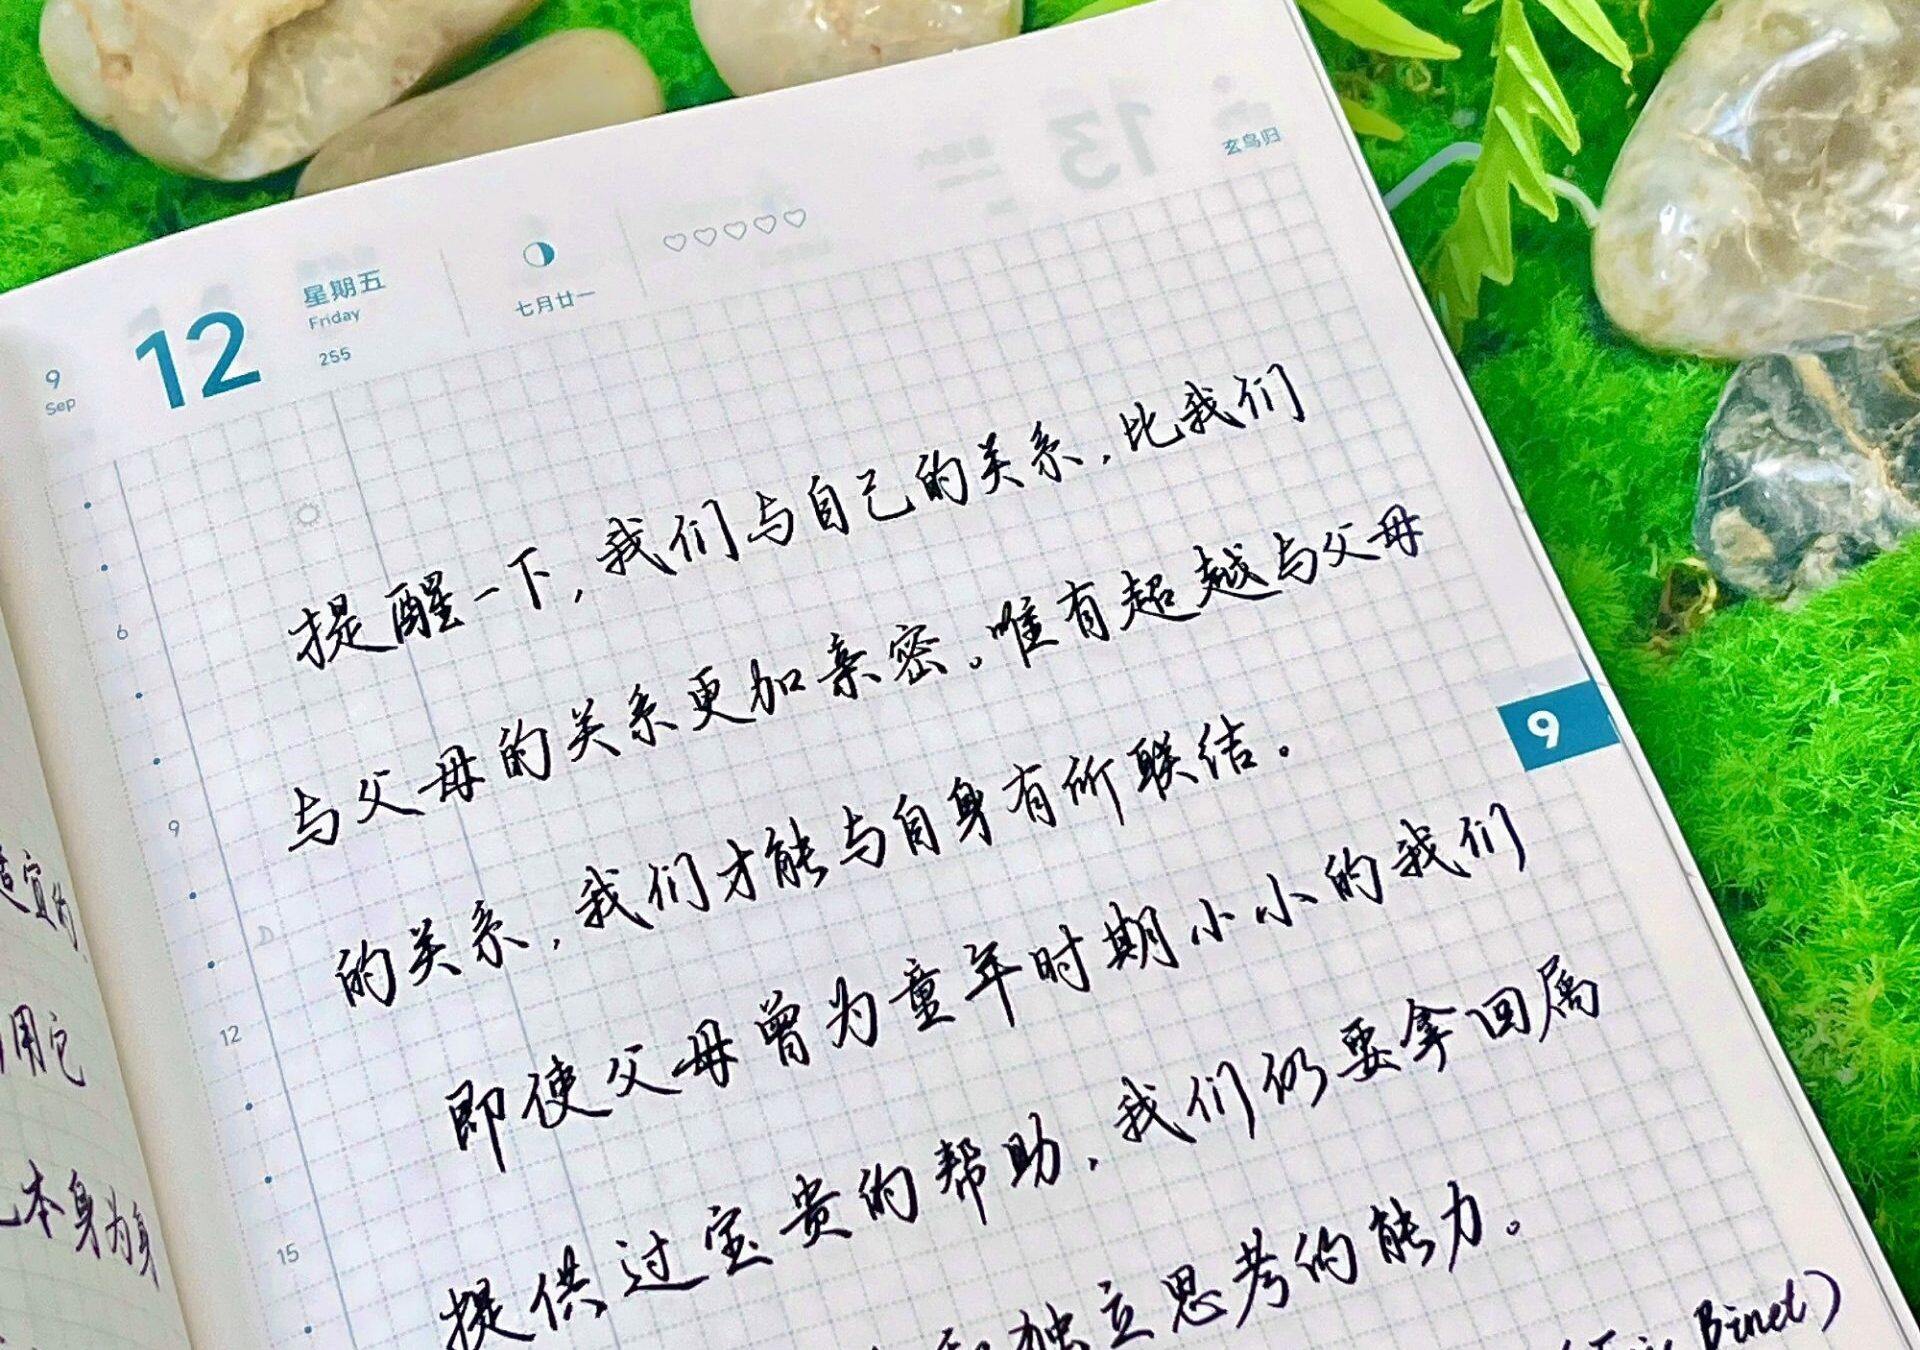 玄鸟归
9
Sep
12
星期五
Friday
255
七月廿一
13
提醒一下，我们与自己的关系，比我们
与父母的关系更加亲密。唯有超越与父母
的关系，我们才能与自身有所联结。
即使父母曾为童年时期小小的我们
提供过宝贵的帮助，我们仍要拿回属
独立思考的能力。
Binet)
6
9
12
15
9
适宜的
用它
本身为身